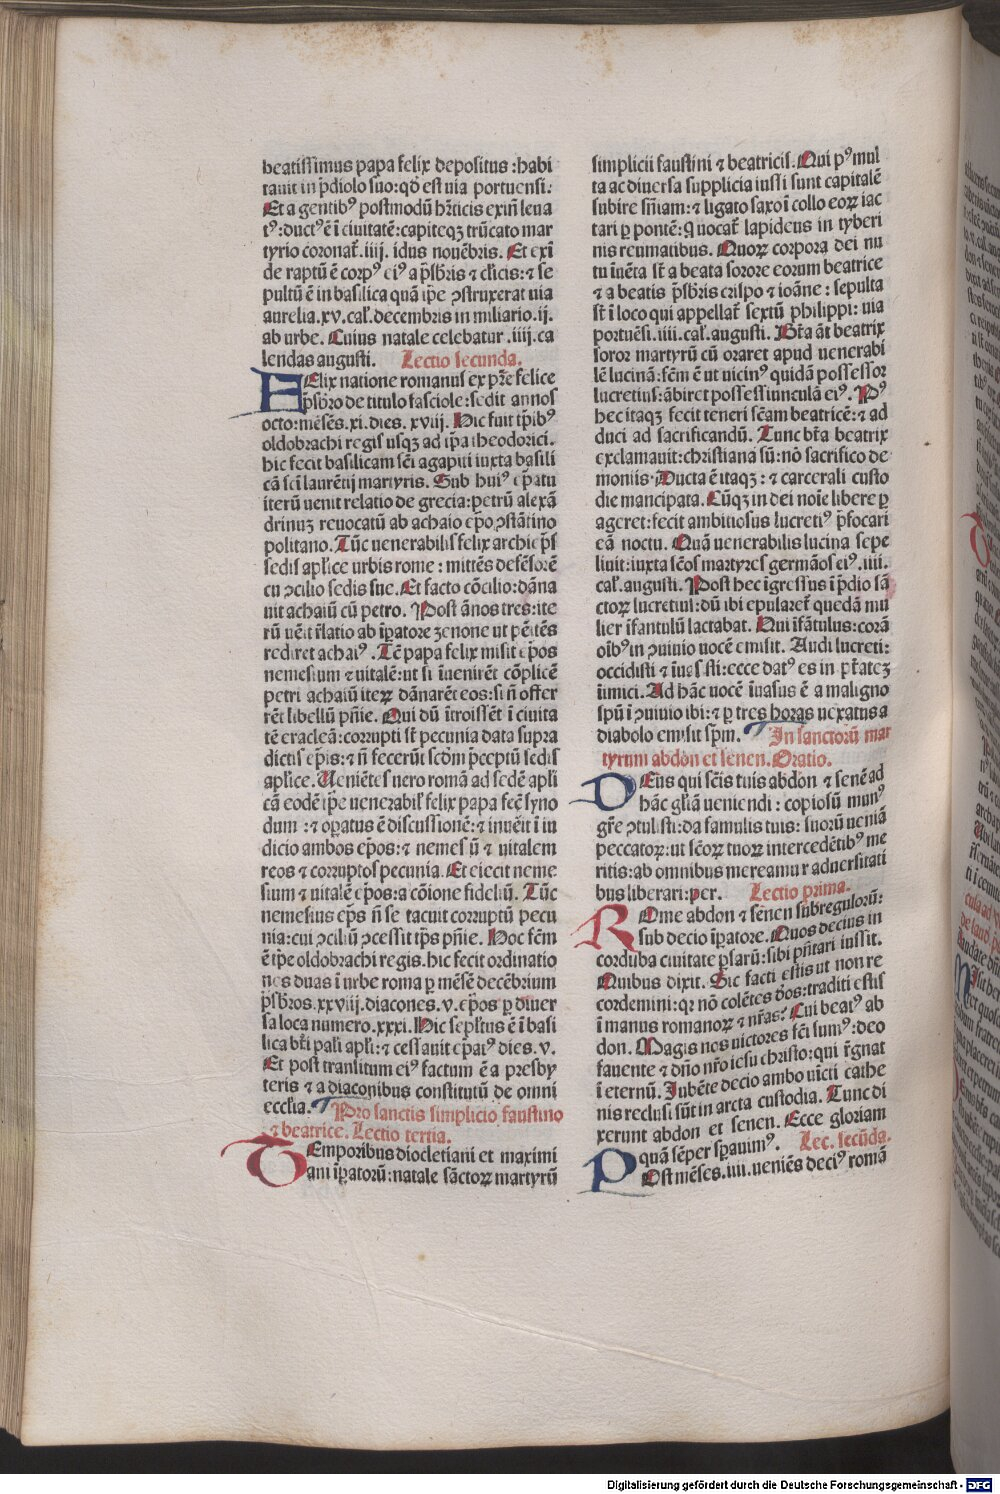 beatissimus papa felix depositus : habi
tauit in p̄diolo suo: qd̄ est uia portuensi.
Et a gentibꝰ postmodū hr̄ticis exim̄ leua
tꝰ: ductꝰ ē ī ciuitatē: capiteqꝫ trūcato mar
tyrio coronat̄. iiij. idus nouēbris. Et exī
de raptū ē corpꝰ eiꝰ a p̄sbr̄is ⁊ cl̄icis: ⁊ se
pultū ē in basilica quā ip̄e ꝯstruxerat uia
aurelia. xv. cal̄. decembris in miliario. ij.
ab urbe. Cuius natale celebatur . iiij. ca
lendas augusti. Lectio secunda.
FElix natione romanus ex pr̄e felice
p̄sbr̄o de titulo fasciole: sedit annos
octo: mēses. xi. dies. xviij. Hic fuit tp̄ibꝰ
oldobrachi regis usqꝫ ad tp̄a theodorici.
hic fecit basilicam sc̄i agapiti iuxta basili
cā sc̄i laurētij martyris. Sub huiꝰ ep̄atu
iterū uenit relatio de grecia: petrū alexā
drinuꝫ reuocatū ab achaio ep̄o ꝯstātino
politano. Tūc uenerabilis felix archiep̄s
sedis apl̄ice urbis rome : mittēs defēsorē
cū ꝯcilio sedis sue. Et facto cōcilio: dāna
uit achaiū cū petro. Post ānos tres: ite
rū uēit r̄latio ab īpatore ꝫenone ut pēitēs
rediret achaiꝰ . Tē papa felix misit ep̄os
nemesium ⁊ uitalē: ut si īuenirēt cōplicē
petri achaiū iteꝝ dānarēt eos: si n̄ offer
rēt libellū pn̄ie. Qui dū ītroissēt ī ciuita
tē eracleā: corrupti st̄ pecunia data supra
dictis ep̄is: ⁊ n̄ fecerūt scdm̄ p̄ceptū sedis
apl̄ice. Ueniētes uero romā ad sedē apl̄i
cā eodē tp̄e uenerabil̄ felix papa fec̄ syno
dum : ⁊ oꝑatus ē discussionē: ⁊ inuēit ī iu
dicio ambos ep̄os: ⁊ nemesiū ⁊ uitalem
reos ⁊ corruptos pecunia. Et eiecit neme
sium ⁊ uitalē ep̄os: a cōione fideliū. Tūc
nemesius ep̄s n̄ se tacuit corruptū pecu
nia: cui ꝯciliū ꝯcessit tp̄s pn̄ie. Hoc fc̄m
ē tp̄e oldobrachi regis. hic fecit ordinatio
nes duas ī urbe roma ꝑ mēsē decēbrium
p̄sbr̄os. xxviij. diacones. v. ep̄os ꝑ diuer
sa loca numero. xxxi. Hic sepl̄tus ē ī basi
lica bt̄i pauli apl̄i: ⁊ cessauit ep̄atꝰ dies. v.
Et post transitum eiꝰ factum ē a presby
teris ⁊ a diaconibus constitutū de omni
ecclia. Pro sanctis simplicio faustino
⁊ beatrice. Lectio tertia.
TEmporibus diocletiani et maximi
ani īpatorū: natale sāctoꝝ martyrū
simplicii faustini ⁊ beatricis. Qui pꝰ mul
ta ac diuersa supplicia iussi sunt capitalē
subire sn̄iam: ⁊ ligato saxo ī collo eoꝝ iac
tari ꝑ pontē: q̄ uocat̄ lapideus in tyberi
nis reumatibus. Quoꝝ corpora dei nu
tu īuēta st̄ a beata sorore eorum beatrice
⁊ a beatis p̄sbr̄is crispo ⁊ ioāne : sepulta
st̄ ī loco qui appellat̄ sextū philippi: uia
portuēsi. iiii. cal̄. augusti. Bt̄a āt beatrix
soror martyrū cū oraret apud uenerabi
lē lucinā: fc̄m ē ut uicinꝰ quidā possessor
lucretius: ābiret possessiunculā eiꝰ. Pꝰ
hec itaqꝫ fecit teneri sc̄am beatricē: ⁊ ad
duci ad sacrificandū. Tunc bt̄a beatrix
exclamauit: christiana sū: nō sacrifico de
moniis. Ducta ē itaqꝫ : ⁊ carcerali custo
die mancipata. Cūqꝫ in dei noīe libere ꝑ
ageret: fecit ambitiosus lucretiꝰ p̄focari
eā noctu. Quā uenerabilis lucina sepe
liuit: iuxta sc̄os martyres germāos eiꝰ. iiii.
cal̄. augusti. Post hec īgressus ī p̄dio sā
ctoꝝ lucretiui: dū ibi epularet̄ quedā mu
lier īfantulū lactabat. Qui īfātulus: corā
oībꝰ in ꝯuiuio uocē emisit. Audi lucreti:
occidisti ⁊ īuesisti: ecce datꝰ es in pt̄ateꝫ
īimici. Ad hāc uocē īuasus ē a maligno
spū ī ꝯuiuio ibi: ⁊ ꝑ tres horas uexatus a
diabolo emisit sp̄m. In sanctorū mar
tyrum abdon et senen. Oratio.
DEus qui sc̄is tuis abdon ⁊ senē ad
hāc gl̄iā ueniendi : copiosū munꝰ
gr̄e ꝯtulisti: da famulis tuis: suorū ueniā
peccatoꝝ: ut sc̄oꝝ tuoꝝ intercedētibꝰ me
ritis: ab omnibus mereamur aduersitati
bus liberari: per. Lectio prima.
ROme abdon ⁊ senen subregulorū:
sub decio īpatore. Quos decius in
corduba ciuitate ꝑsarū: sibi pn̄tari iussit.
Quibus dixit. Sic facti estis ut non re
cordemini: qꝛ nō colētes dōs: traditi estis
ī manus romanoꝝ ⁊ nr̄as? Cui beatꝰ ab
don. Magis nos uictores fc̄i sumꝰ: deo
fauente ⁊ dn̄o nr̄o iesu christo: qui r̄gnat
ī eternū. Iubēte decio ambo uīcti cathe
nis reclusi sūt in arcta custodia. Tunc di
xerunt abdon et senen. Ecce gloriam
quā sēper sꝑauimꝰ. Lec. secūda.
POst mēses. iiii. ueniēs deciꝰ romā
Digitalisierung gefördert durch die Deutsche Forschungsgemeinschaft - DFG